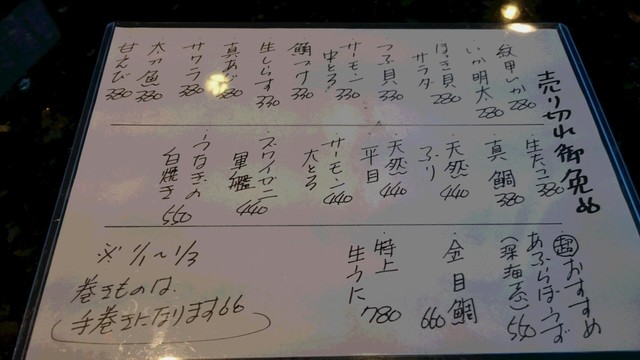 売り切れ御免め
紋甲いか 280
いか明太 280
ほっき貝サラダ 280
つぶ貝 330
サーモン中とろ 330
鯛づけ 330
生しらす 330
真あじ 380
サワラ 380
太刀魚 380
甘えび 380
・生たこ 380
・真鯛 380
・天然ぶり 440
・天然平目 440
・サーモン大とろ 440
・ズワイガニ軍艦 440
・うなぎの白焼き 550
超おすすめ
・あぶらぼうず(深海魚) 550
・金目鯛 660
・特上生うに 780
※ 1/1〜1/3
巻きものは、
手巻きになります